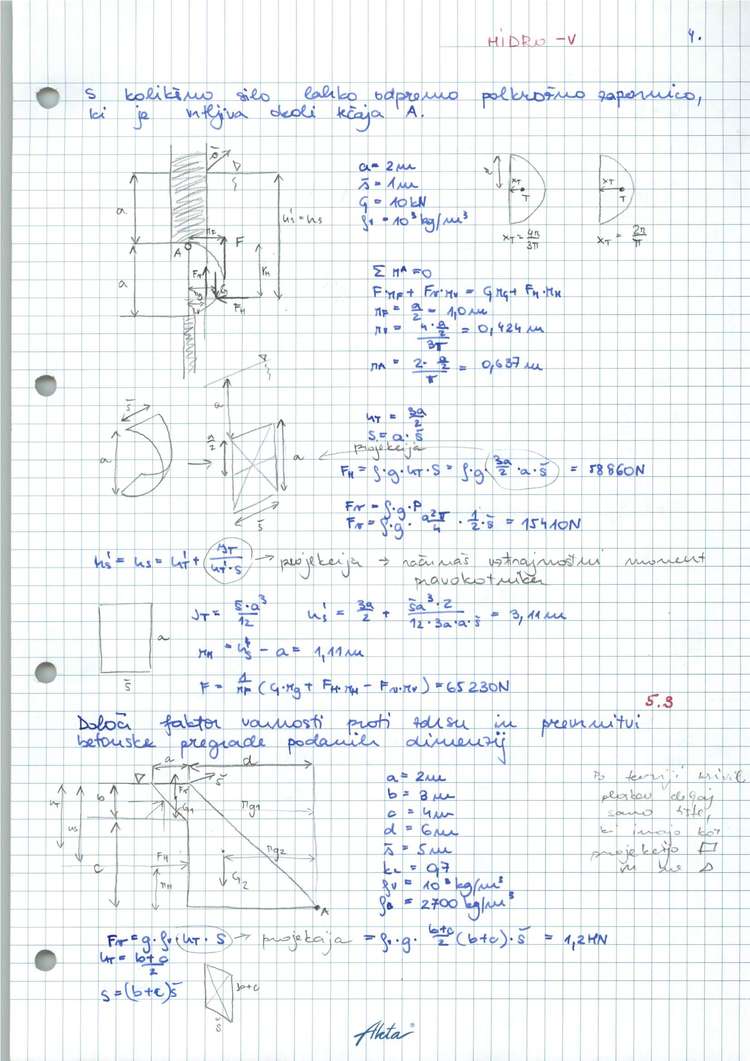 HIDRO -V
4.
S kolikšno silo lahko odpremo polkrožno zapornico,
ki je vrtljiva okoli tečaja A.
a = 2m
s̄ = 1m
G = 10kN
ρv = 10³ kg/m³
xT = 4r/3π
xT = 2r/π
hs' = hs
ΣMᴬ = 0
F·rF + Fv·rv = G·rG + FH·rH
rF = a/2 = 1,0m
rv = (4·a/2)/3π = 0,424m
rA = (2·a/2)/π = 0,637m
hT = 3a/2
S = a·s̄
projekcija
FH = ρ·g·hT·S = ρ·g·3a/2·a·s̄ = 58860N
Fv = ρ·g·P
Fv = ρ·g·a²π/4·1/2·s̄ = 15410N
hs' = hs = hT' + JT/(hT'·S) → projekcija → računaš vztrajnostni moment
pravokotnika
JT = s̄·a³/12 hs' = 3a/2 + s̄a³·2/(12·3a·a·s̄) = 3,11m
rH = hs' - a = 1,11m
F = 1/rF (G·rg + FH·rH - Fv·rv) = 65230N
5.9
Določi faktor varnosti proti zdrsu in prevrnitvi
betonske pregrade podanih dimenzij
a = 2m
b = 3m
c = 4m
d = 6m
s̄ = 5m
kt = 0,7
ρv = 10³ kg/m³
ρB = 2700 kg/m³
Po teoriji
samo
ki imajo kot
projekcijo □
Fv = g·ρv·hT·S → projekcija = ρv·g·(b+c)/2 (b+c)·s̄ = 1,2MN
hT = (b+c)/2
S = (b+c)s̄
b+c
s̄
Akta